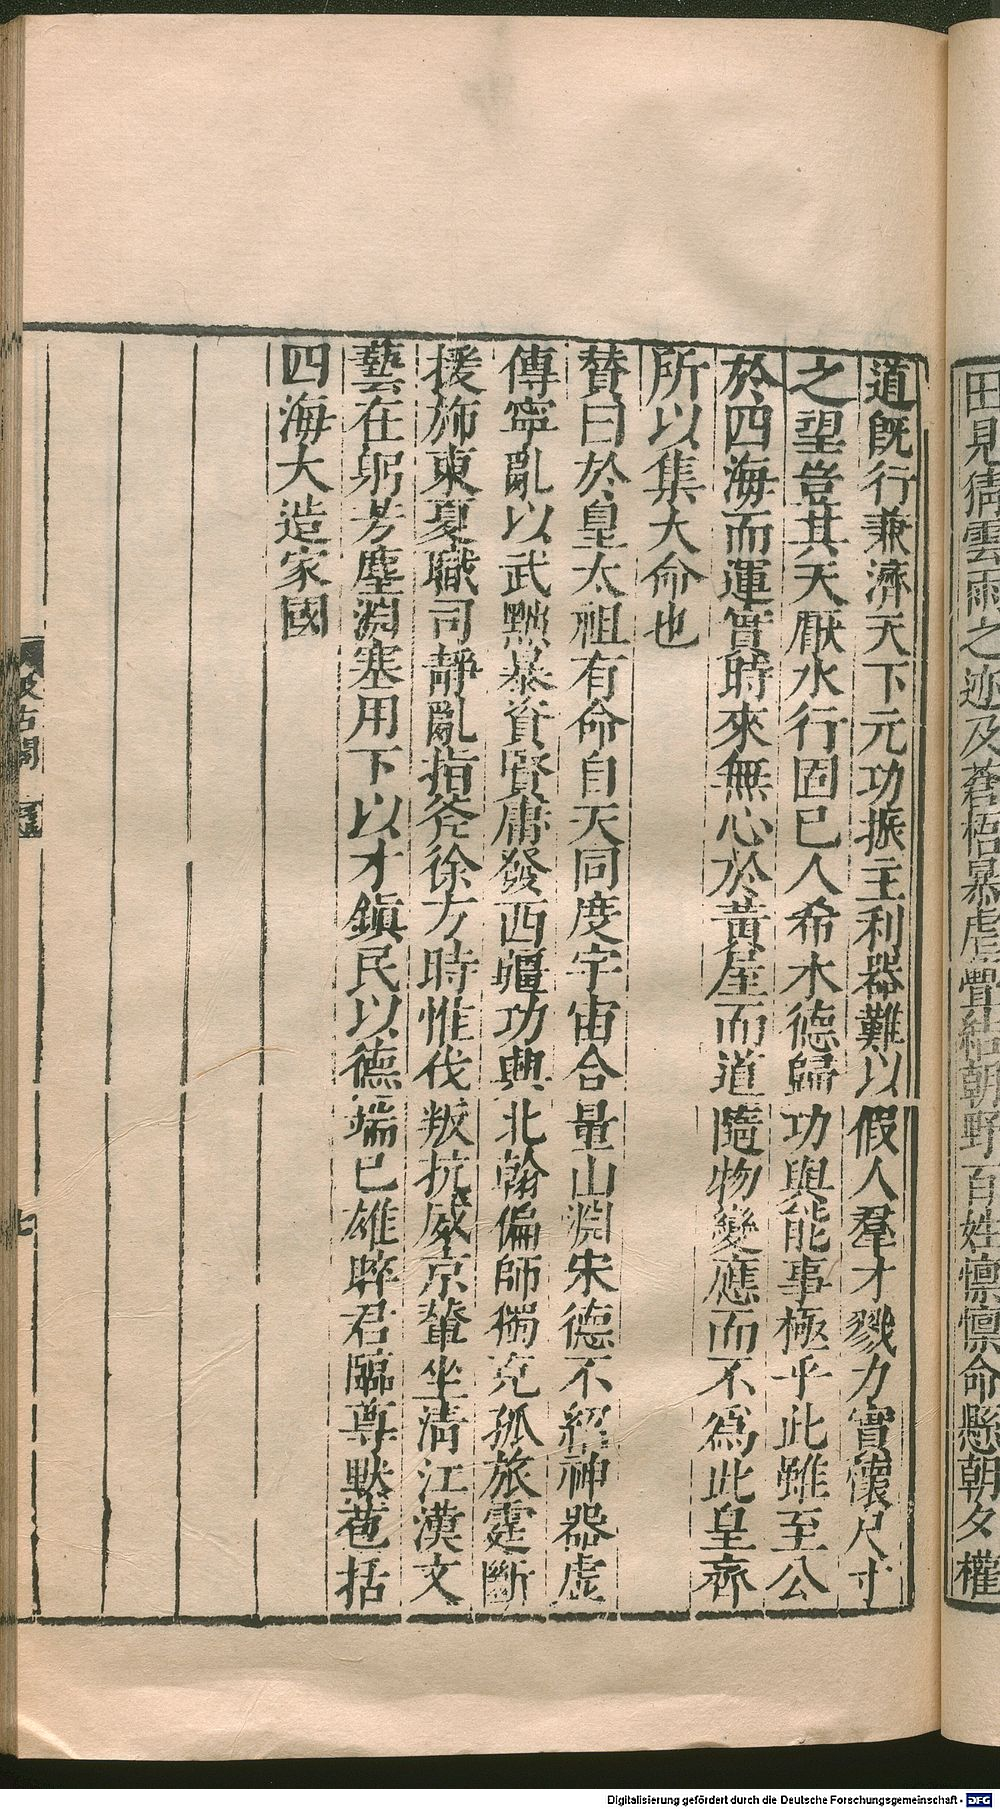 田見
雲雨之迹及蒼梧暴虐釁結朝野百姓懍懍命懸朝夕權
道既行兼濟天下元功振主利器難以假人羣才戮力實懷尺寸
之望豈其天厭水行固已人希木德歸功與能事極乎此雖至公
於四海而運實時來無心於黃屋而道隨物變應而不爲此皇齊
所以集大命也
贊曰於皇太祖有命自天同度宇宙合量山淵宋德不紹神器虛
傳寧亂以武黜暴資賢庸發西疆功興北翰偏師獨克孤旅霆斷
援斾東夏職司靜亂指斧徐方時惟伐叛抗威京輦坐清江漢文
藝在躬芳塵淵塞用下以才鎭民以德端己雄睟君臨尊默苞括
四海大造家國
汲古閣
七
Digitalisierung gefördert durch die Deutsche Forschungsgemeinschaft - DFG